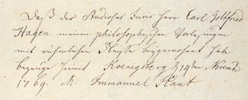 Daß der Studiosus Juris Herr Carl Gottfried
Hagen meinen philosophischen Vorlesungen
mit rühmlichem Fleiße beygewohnet habe
bezeuge hiemit Koenigsberg d. 14ten Novembr
1769. M. Immanuel Kant